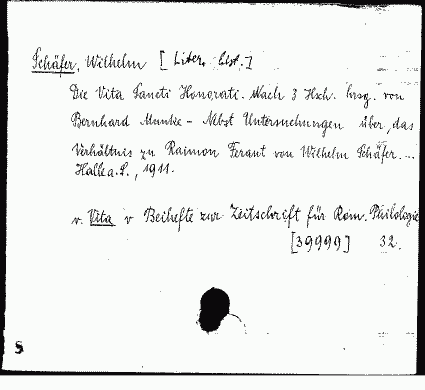 Schäfer, Wilhelm [Liter. hist.]
Die Vita Sancti Honorati. Nach 3 Hsch. hrsg. von
Bernhard Munke - Nebst Untersuchungen über das
Verhältnis zu Raimon Feraut von Wilhelm Schäfer. ...
Halle a. S., 1911.
v. Vita v Beihefte zur Zeitschrift für Rom. Philologie
[39999] 32.
S